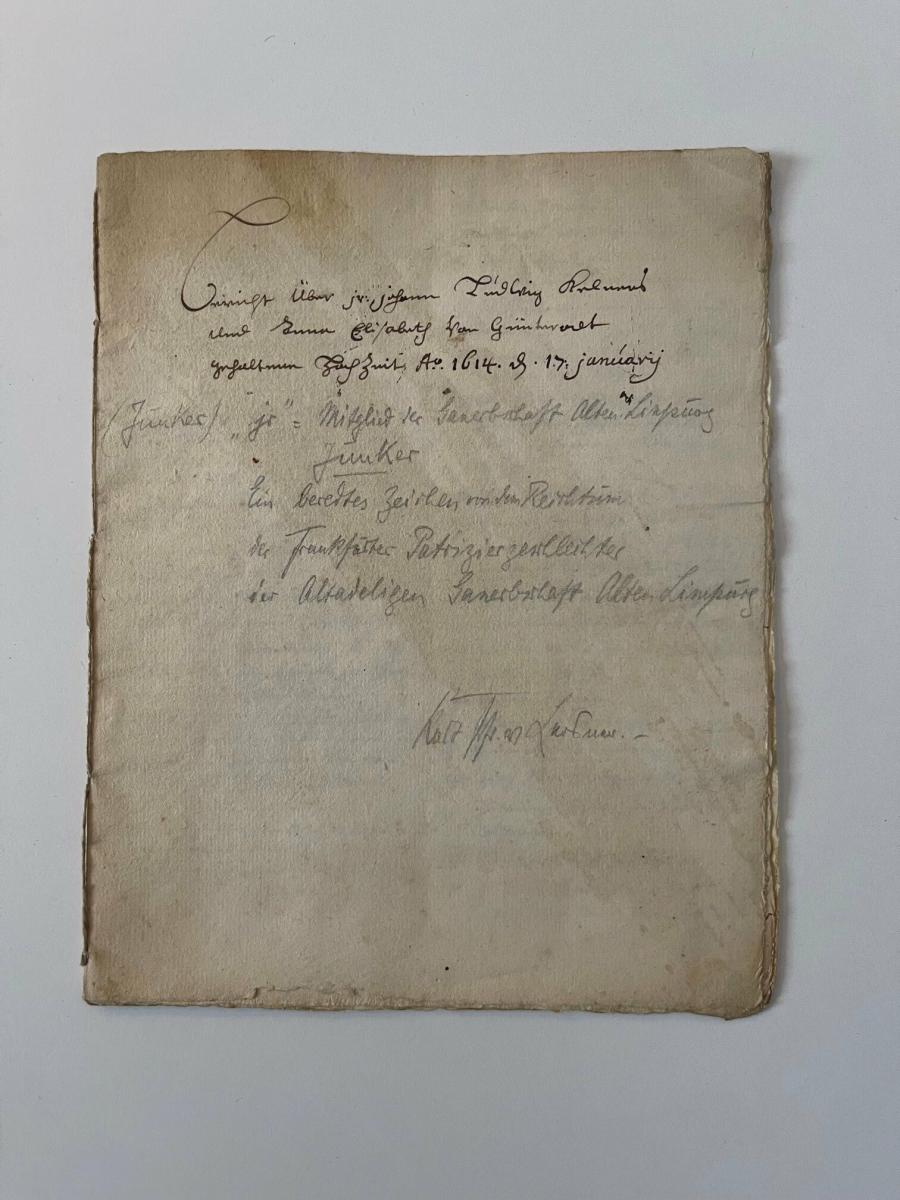 Bericht Über jr: Johann Ludwig Kelners
und Anna Elisabeth Von Günterrodt
gehaltene HochZeit, Ao. 1614. d. 17. januarij
(Junker) "jr" = Mitglied der Ganerbschaft Alten Limpurg
Junker
Ein beredtes Zeichen von dem Reichtum
der Frankfurter Patriziergeschlechter
der Altadeligen Ganerbschaft Alten Limpurg
Frhr. v Lersner. –